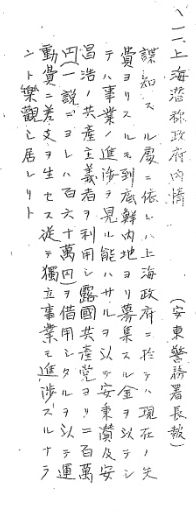 一、上海潜称政府内情
(安東警務署長報)
諜知スル處ニ依レハ上海政府ニ於テハ現在ノ失
費ヨリスルモ到底鮮内地ヨリ募集スル金ヲ以テシ
テハ事業ノ進渉ヲ見ル能ハサルヲ以テ安東瓚及安
昌浩ノ共産主義者ヲ利用シ露國共産党ヨリ二百萬
円(一説ニヨレハ百六十萬円)ヲ借用シタルヲ以テ運
動資差支ヲ生セス従テ獨立事業モ進渉スルナラ
ント樂觀シ居レリト